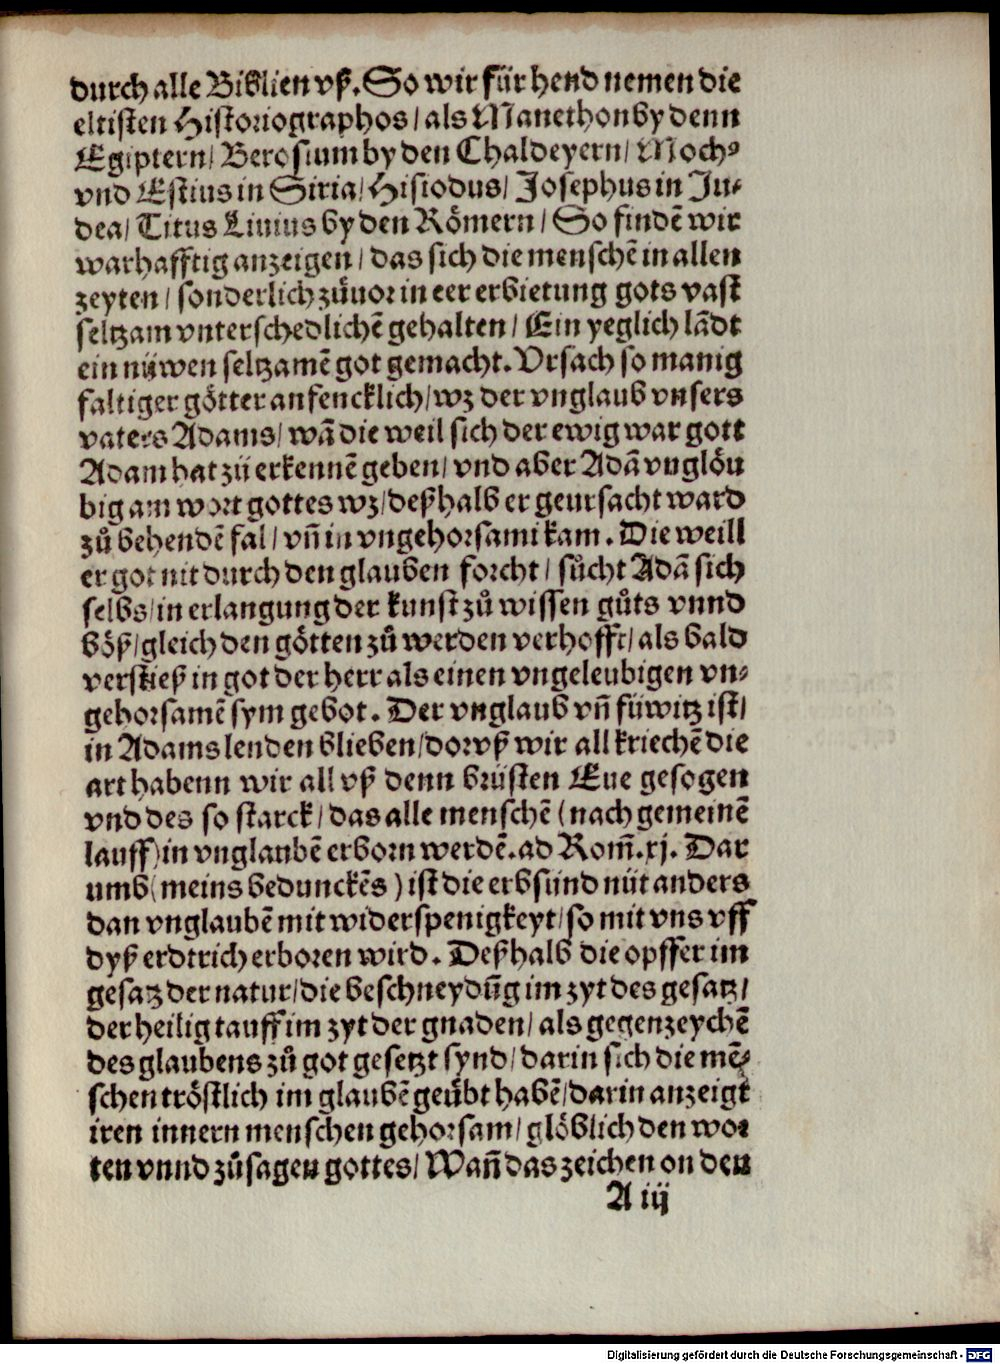 durch alle Biblien vß. So wir für hend nemen die
eltisten Historiographos / als Manethon by denn
Egiptern / Berosium by den Chaldeyern / Moch⸗
vnd Estius in Siria / Hisiodus / Josephus in Ju⸗
dea / Titus Liuius by den Römern / So findē wir
warhafftig anzeigen / das sich die menschē in allen
zeyten / sonderlich zůuor in eer erbietung gots vast
seltzam vnterschedlichē gehalten / Ein yeglich lādt
ein nüwen seltzamē got gemacht. Vrsach so manig
faltiger götter anfencklich / wz der vnglaub vnsers
vaters Adams / wā die weil sich der ewig war gott
Adam hat zů erkennē geben / vnd aber Adā vnglöu
big am wort gottes wz / deßhalb er geursacht ward
zů behendē fal / vñ in vngehorsami kam. Die weill
er got nit durch den glauben forcht / sůcht Adā sich
selbs / in erlangung der kunst zů wissen gůts vnnd
böß / gleich den götten zů werden verhofft / als bald
verstieß in got der herr als einen vngeleubigen vn⸗
gehorsamē sym gebot. Der vnglaub vñ füwitz ist /
in Adams lenden blieben / dorvß wir all kriechē die
art habenn wir all vß denn brüsten Eue gesogen
vnd des so starck / das alle menschē (nach gemeinē
lauff) in vnglaubē erborn werdē. ad Rom̄. xj. Dar
umb (meins bedunckēs) ist die erbsünd nüt anders
dan vnglaubē mit widerspenigkeyt / so mit vns vff
dyß erdtrich erboren wird. Deßhalb die opffer im
gesatz der natur / die beschneydūg im zyt des gesatz /
der heilig tauff im zyt der gnaden / als gegenzeychē
des glaubens zů got gesetzt synd / darin sich die mē⸗
schen tröstlich im glaubē geübt habē / darin anzeigt
iren innern menschen gehorsam / glöblich den wor
ten vnnd zůsagen gottes / Wañ das zeichen on den
A iij
Digitalisierung gefördert durch die Deutsche Forschungsgemeinschaft - DFG